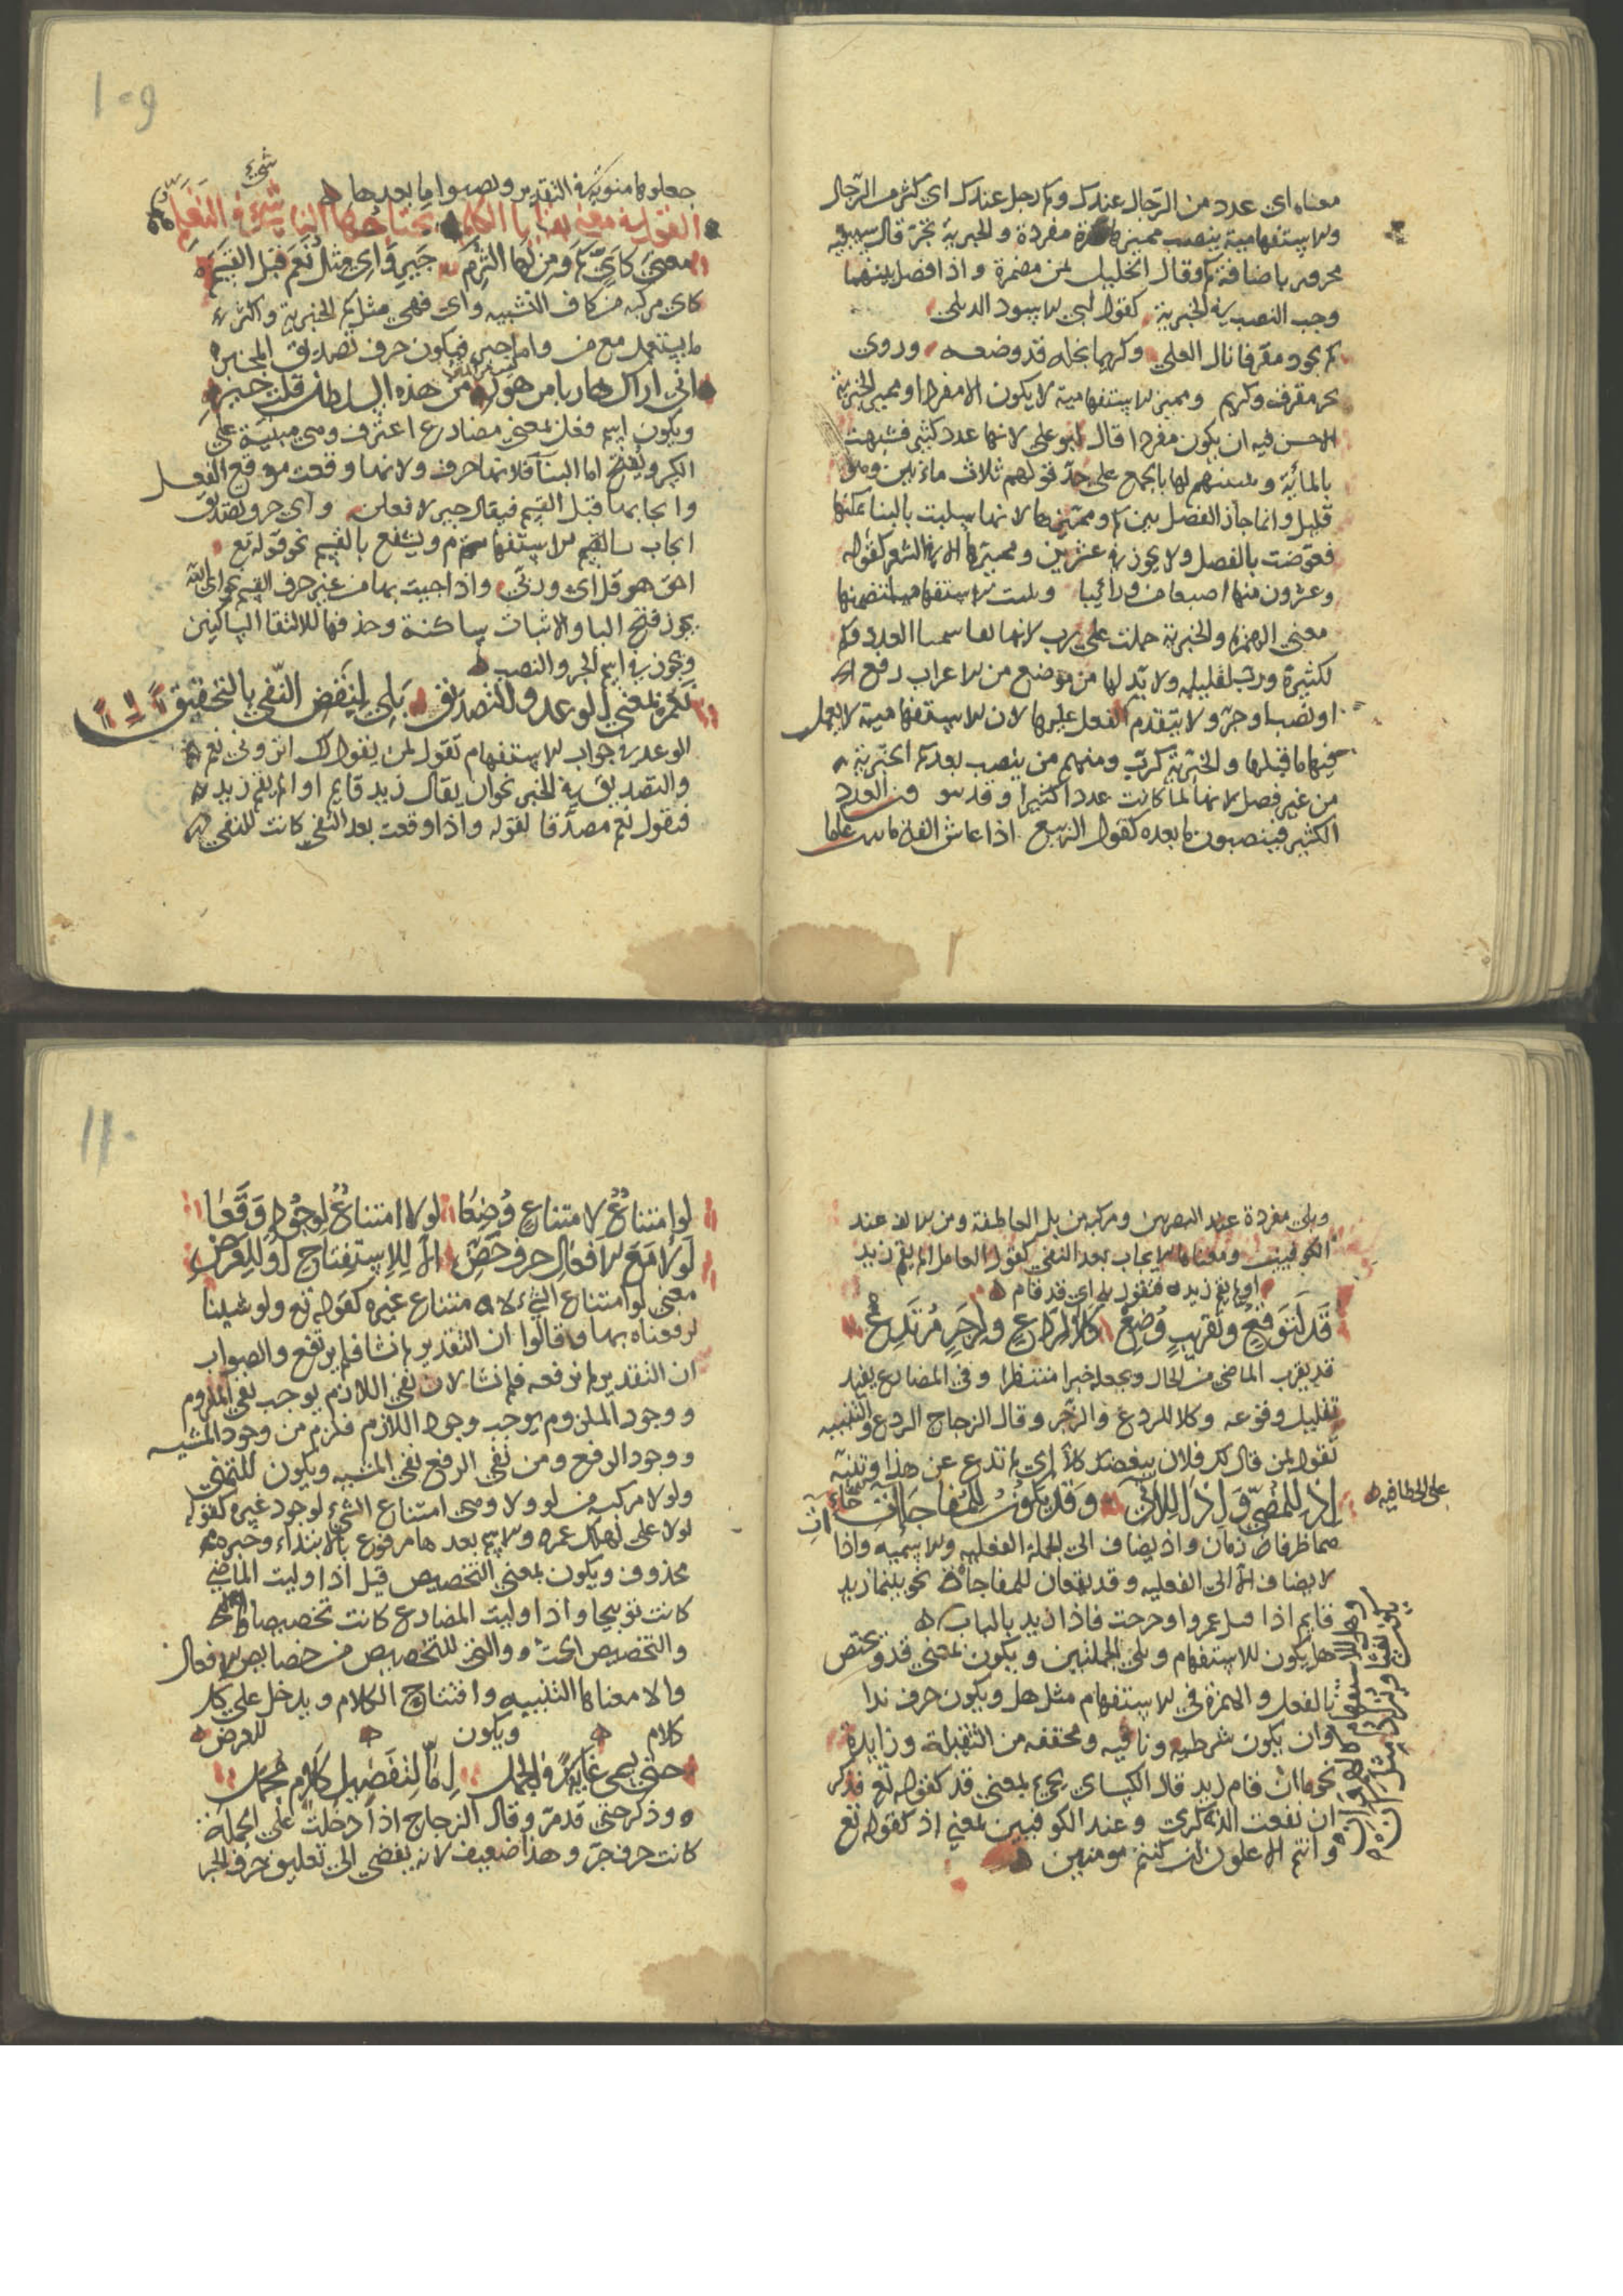 معناه اي عدد من الرجال عندك وكم رجل عندك اي كثر من الرجال
والاستفهامية ينصب مميزها نكرة مفردة والخبرية تجره قال سيبويه
مجرور باضافة كم وقال الخليل بمن مضمرة واذا فصل بينهما
وجب النصب في الخبرية كقول ابي الاسود الدىلي
كم بجود مقرفا نال العلي وكريما بخله قد وضعه وروي
بجر مقرف وكريم ومميز الاستفهامية لا يكون الا مفردا ومميز الخبرية
الاحسن فيه ان يكون مفردا قال ابو علي لانها عدد كثير فشبهت
بالمائة لها بالجمع على حد قولهم ثلاث مائين وهو
قليل وانما جاز الفصل بين كم ومميزها لانها سلبت بالبنا تمكنها
فعوضت بالفصل ولا يجوز في عشرين ومميزها الا في الشعر كقوله
وعشرون منها اصبعا من ورائيا الاستفهامية لتضمنها
معنى الهمزة والخبرية حملت على رب لانها العدد فكم
لكثيرة ورب لقليله ولا بد لها من موضع من الاعراب رفع
او نصب او جر ولا يتقدم الفعل عليها لان الاستفهامية لا يعمل
فيها ما قبلها والخبرية كرب ومنهم من ينصب بعد كم الخبرية
من غير فصل لانها لما كانت عددا كثيرا وقد العدد
الكثير فينصبون ما بعده كقول الربيع اذا عاش الفتى عاما
جعلوها منونة في التقدير ونصبوا ما بعدها
القول في معنى بقايا الكلم يحتاجها الناشيء في التعلم
شيء
معنى كاي كم ومن لها التزم جير واي مثل نعم قبل القسم
كاي مركبه من كاف التشبيه واي فهي مثل كم الخبرية واكثر
ما يستعمل مع من واما جير فيكون حرف تصديق المخبر
اني اراك هاربا من هول من هذه السلطان قلت جير
ويكون اسم فعل بمعنى مضارع اعترف وهي مبنية على
الكسر وتفتح اما البنا فلانها حرف ولانها وقعت موقع الفعل
وايجابها قبل القسم فيقال جير لا فعلن واي حرف تصديق
ايجاب الاستفهام ويشفع بالقسم نحو قوله تع
احق هو قل اي وربي واذا جيت بها من غير حرف القسم نحو اي الله
يجوز فتح اليا والاثبات ساكنة وحذفها لالتقا الساكنين
ويجوز في اسم الجر والنصب
نعم لمعنى الوعد والتصديق بلى لنقض النفي بالتحقيق
الوعد في جواب الاستفهام تقول لمن يقول لك اتزوني نعم
والتصديق في الخبر نحو ان يقال زيد قايم او لم يقم زيد
فتقول نعم مصدقا لقوله واذا وقعت بعد النفي كانت للنفي
وبلى مفردة عند البصريين ومركبه من بل العاطفة ومن الالف عند
الكوفيين ومعناها الايجاب بعد النفي كقول العامل الم يقم زيد
او لم يقم زيد فتقول بلى اي قد قام
قد لتوقع وتقريب وضع كلا لردع ولزجر مرتدع
قد يقرب الماضي من الحال ويجعله خبرا منتظرا وفي المضارع يفيد
تقليل وقوعه وكلا للردع والزجر وقال الزجاج الردع والتنبيه
تقول لمن قال لك فلان يبغضك كلا اي ارتدع عن هذا وتنبه
على الخطا فيه
اذ للمضي واذا للاتي وقد يكون للمفاجات
هما ظرفا زمان واذ يضاف الى الجملة الفعليه والاسميه واذا
لا يضاف الا الى الفعليه وقد يقعان للمفاجاة نحو بينما زيد
قايم اذا عمروا وخرجت فاذا زيد بالباب
هل يكون للاستفهام ويلي الجملتين ويكون بمعنى قد ويختص
بالفعل والهمزة في الاستفهام مثل هل ويكون حرف ندا
وان يكون شرطيه ونافيه ومخففه من الثقيلة وزايدة
نحو ما ان قام زيد قال الكساي يجيء بمعنى قد كقوله تع فذكر
ان نفعت الذكرى وعند الكوفيين بمعنى اذ كقوله تع
وانتم الاعلون ان كنتم مومنين
لو امتناع لامتناع وضعا لولا امتناع لوجود وقعا
لولا مع الافعال حرف حض الا للاستفتاح او للعرض
معنى لو امتناع الشيء لامتناع غيره كقوله تع ولو شينا
لرفعناه بها وقالوا ان التقدير لم نشا فلم يرتفع والصواب
ان التقدير لم نرفعه فلم نشا لان نفي اللازم يوجب نفي الملزوم
ووجود الملزوم يوجب وجود اللازم فلزم من وجود المشيه
ووجود الرفع ومن نفي الرفع نفي المشيه ويكون للتمني
ولولا مركبه من لو ولا وهي امتناع الشيء لوجود غيره كقوله
لولا علي لهلك عمر والاسم بعدها مرفوع بالابتداء وخبره
محذوف ويكون بمعنى التخصيص قيل اذا وليت الماضي
كانت توبيخا واذا وليت المضارع كانت تخصيصا
والتخصيص الحث والتي للتخصيص من خصايص الافعال
والا معناها التنبيه وافتتاح الكلام ويدخل على كل
كلام ويكون للعرض
حتى يجي غاية في الجمل اما لتفصيل كلام مجمل
وذكر حتى قد مر وقال الزجاج اذا دخلت على الجملة
كانت حرف جر وهذا ضعيف لانه يفضي الى تعليق حرف الجر